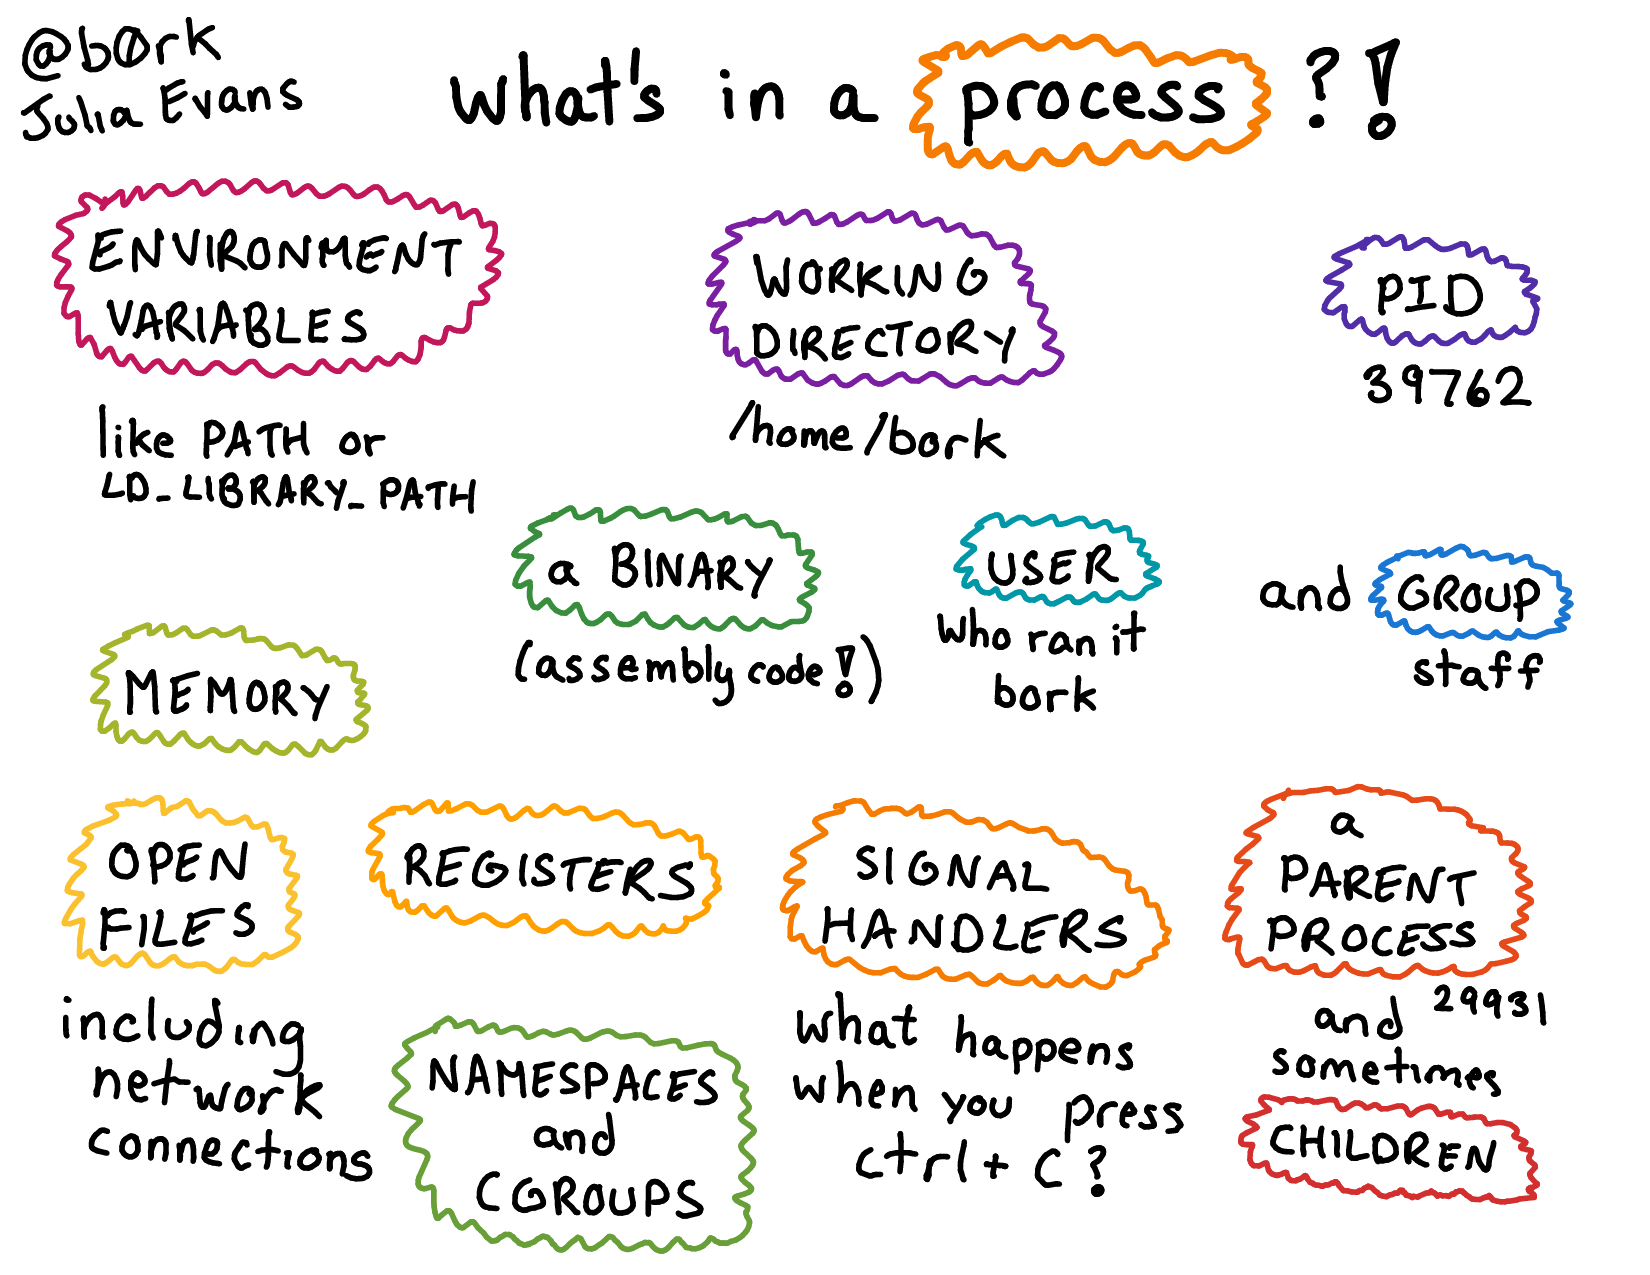 @b0rk
Julia Evans
what's in a process?!
ENVIRONMENT
VARIABLES
like PATH or
LD_LIBRARY_PATH
WORKING
DIRECTORY
/home/bork
PID
39762
a BINARY
(assembly code!)
USER
who ran it
bork
and GROUP
staff
MEMORY
OPEN
FILES
including
network
connections
REGISTERS
NAMESPACES
and
CGROUPS
SIGNAL
HANDLERS
what happens
when you press
ctrl+C?
a
PARENT
PROCESS
29931
and
sometimes
CHILDREN